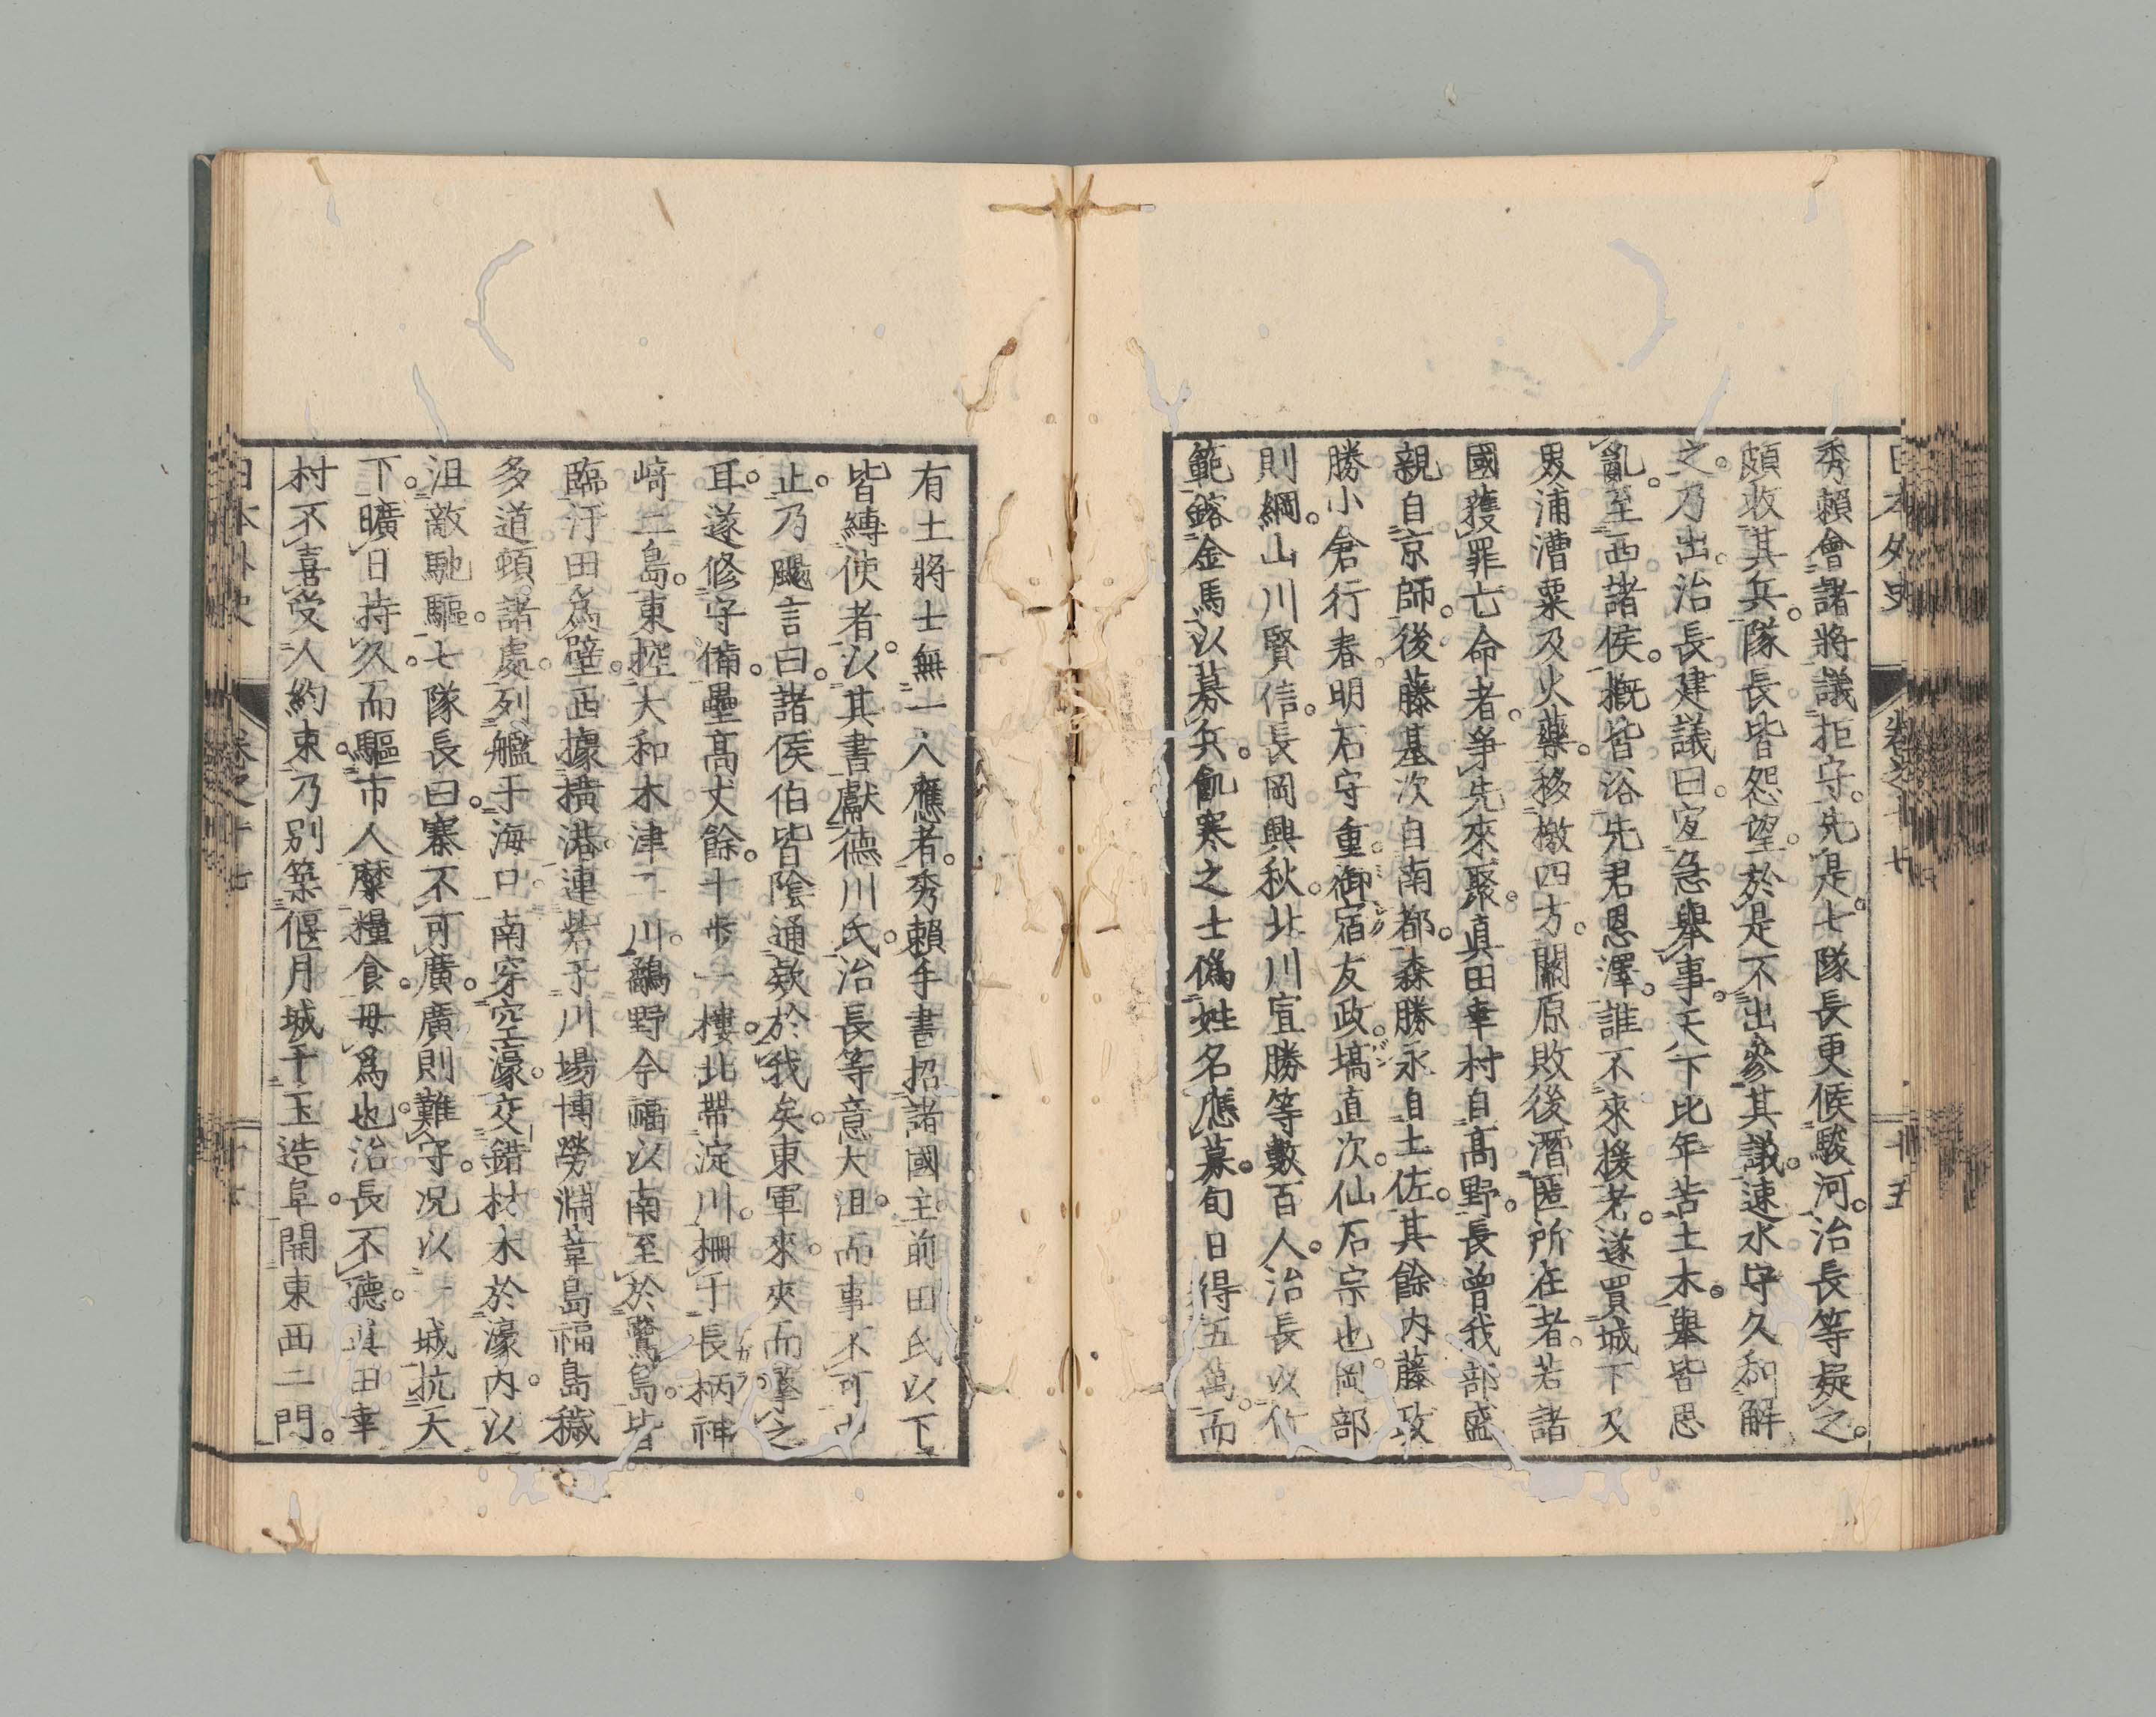 日本外史
卷之十七
二十五
秀賴會諸將議拒守。先是。七隊長更候駿河。治長等疑之。
頗收其兵。隊長皆怨望。於是不出參其議。速水守久和解
之。乃出。治長建議曰。宜急舉事。天下比年苦土木。舉皆思
亂。至西諸侯。概皆浴先君恩澤。誰不來援者。遂買城下及
界浦漕粟及火藥。移檄四方。關原敗後潛匿所在者。若諸
國獲罪亡命者。爭先來聚。眞田幸村自高野。長曾我部盛
親自京師。後藤基次自南都。森勝永自土佐。其餘內藤政
勝小倉行春。明石守重。御宿友政。塙直次。仙石宗也。岡部
則綱。山川賢信。長岡興秋。北川宣勝等數百人。治長以竹
範鎔金馬以募兵。飢寒之士僞姓名應募。旬日得五萬。而
有土將士無一人應者。秀賴手書招諸國主前田氏以下
皆縛使者。以其書獻德川氏。治長等意大沮。而事不可中
止。乃颺言曰。諸侯伯皆陰通款於我矣。東軍來。夾而擊之
耳。遂修守備。壘高丈餘。十步一樓。北帶淀川。柵于長柄神
崎二島。東控大和木津二川。鷸野今福以南至於鷺島。皆
臨汙田爲壁。西據橫港。連砦于川場博勞淵葦島福島穢
多道頓。諸處。列艦于海口。南穿空濠。交錯材木於濠內。以
沮敵馳驅。七隊長曰。寨不可廣。廣則難守。況以一城抗天
下。曠日持久。而驅市人糜糧食。毋爲也。治長不聽。眞田幸
村不喜受人約束。乃別築偃月城于玉造阜。開東西二門。
日本外史
卷之十七